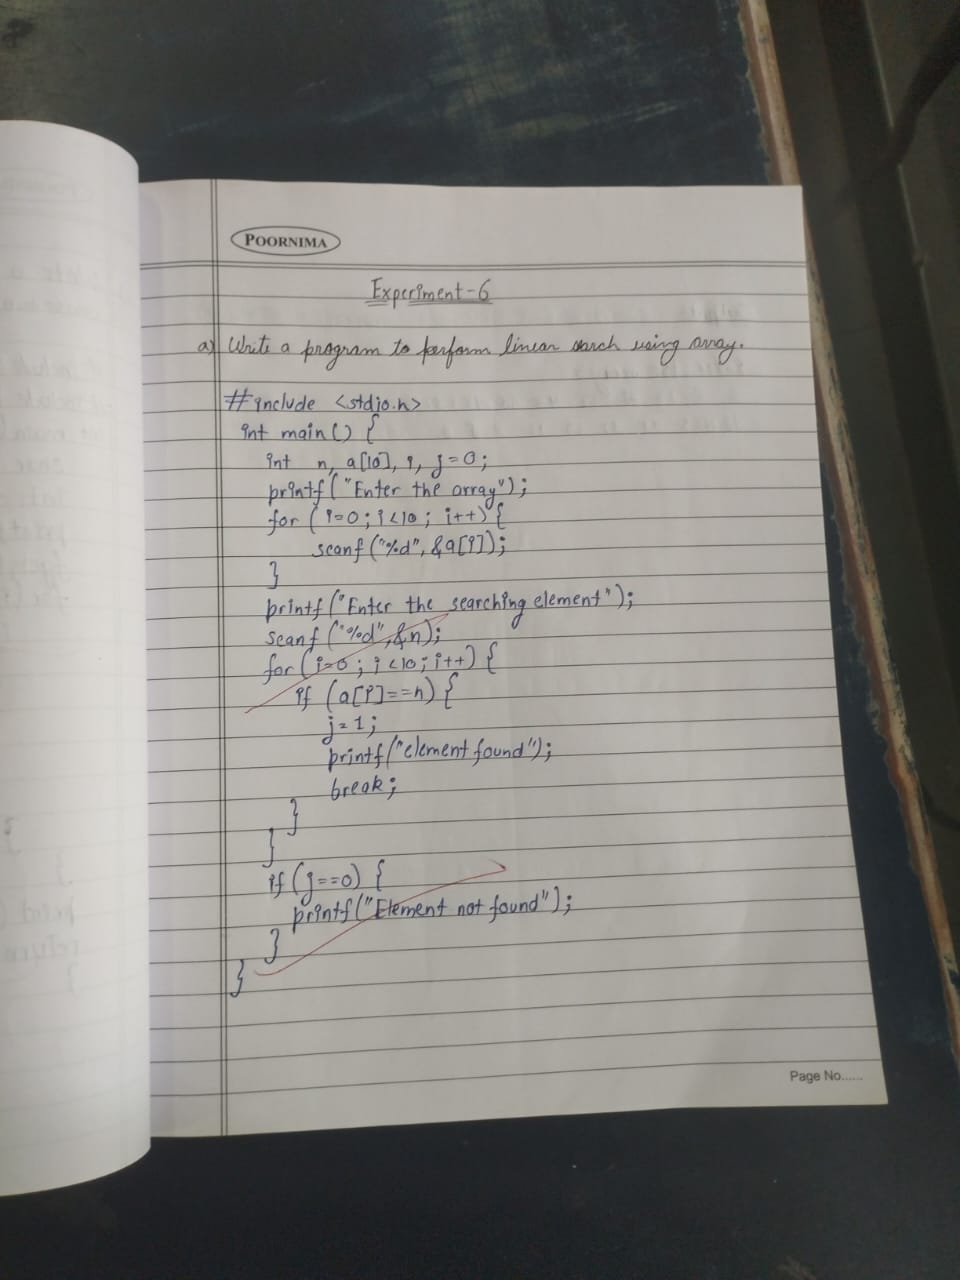 POORNIMA
Experiment-6
a) Write a program to perform linear search using array.
#include <stdio.h>
int main() {
int n, a[10], i, j=0;
printf("Enter the array");
for (i=0; i<10; i++) {
scanf("%d", &a[i]);
}
printf("Enter the searching element");
scanf("%d", &n);
for (i=0; i<10; i++) {
if (a[i]==n) {
j=1;
printf("element found");
break;
}
}
if (j==0) {
printf("Element not found");
}
}
Page No......